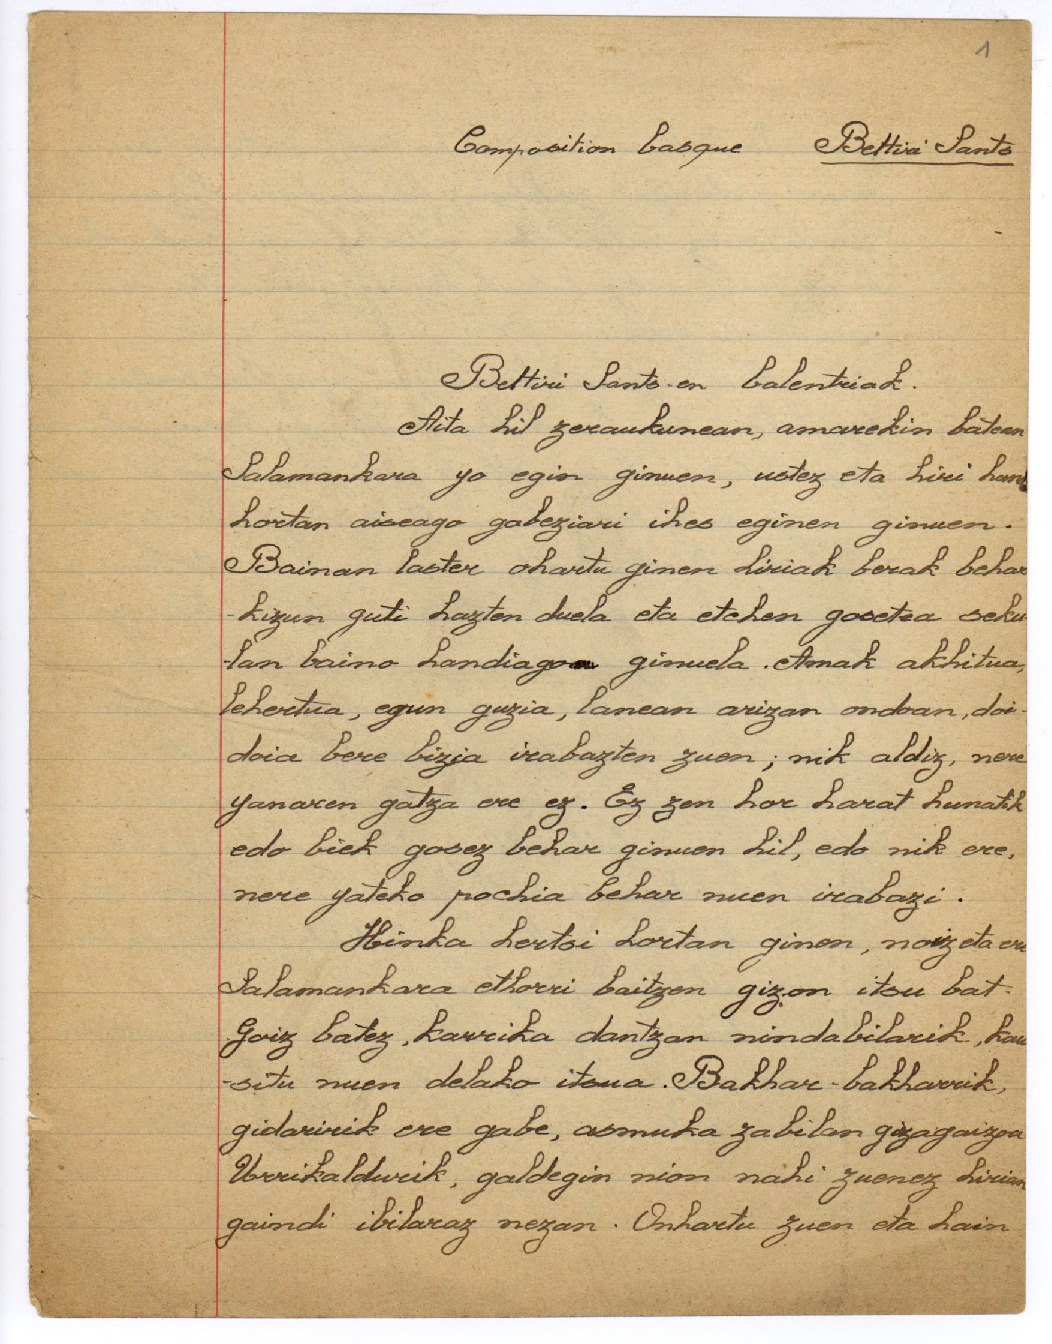 1
Composition basque Bettiri Santo
Bettiri Santo-en balentriak.
Aita hil zeraukunean, amarekin batean
Salamankara yo egin ginuen, ustez eta hiri handi
hortan aiseago gabeziari ihes eginen ginuen.
Bainan laster ohartu ginen hiriak berak behar
-kizun guti hazten duela eta etchen gosetea seku
-lan baino handiagoa ginuela. Amak akhitua,
lehertua, egun guzia, lanean arizan ondoan, doi-
doia bere bizia irabazten zuen; nik aldiz, nere
yanaren gatza ere ez. Ez zen hor harat hunatik
edo biek gosez behar ginuen hil, edo nik ere,
nere yateko pochia behar nuen irabazi.
Hinka hertsi hortan ginen, noiz eta ere
Salamankara ethorri baitzen gizon itsu bat.
Goiz batez, karrika dantzan nindabilarik, kau
-situ nuen delako itsua. Bakhar-bakharrik,
gidaririk ere gabe, asmuka zabilan gizagaizoa
Urrikaldurik, galdegin nion nahi zuenez hirian
gaindi ibilaraz nezan. Onhartu zuen eta hain